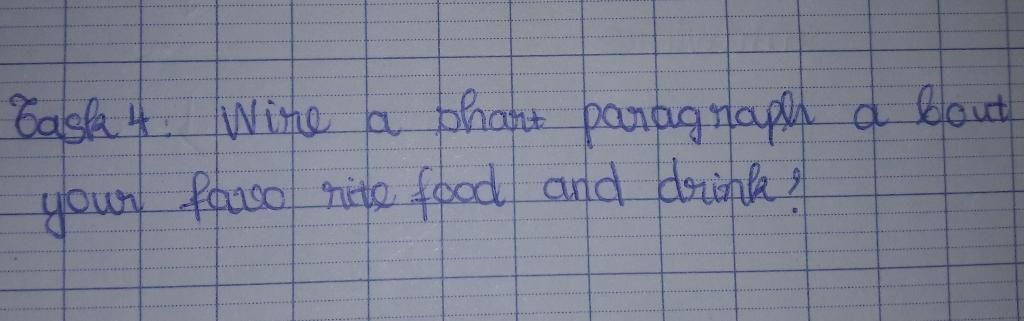 Task 4: Wire a phant paragraph a bout
your favo rite food and drink?